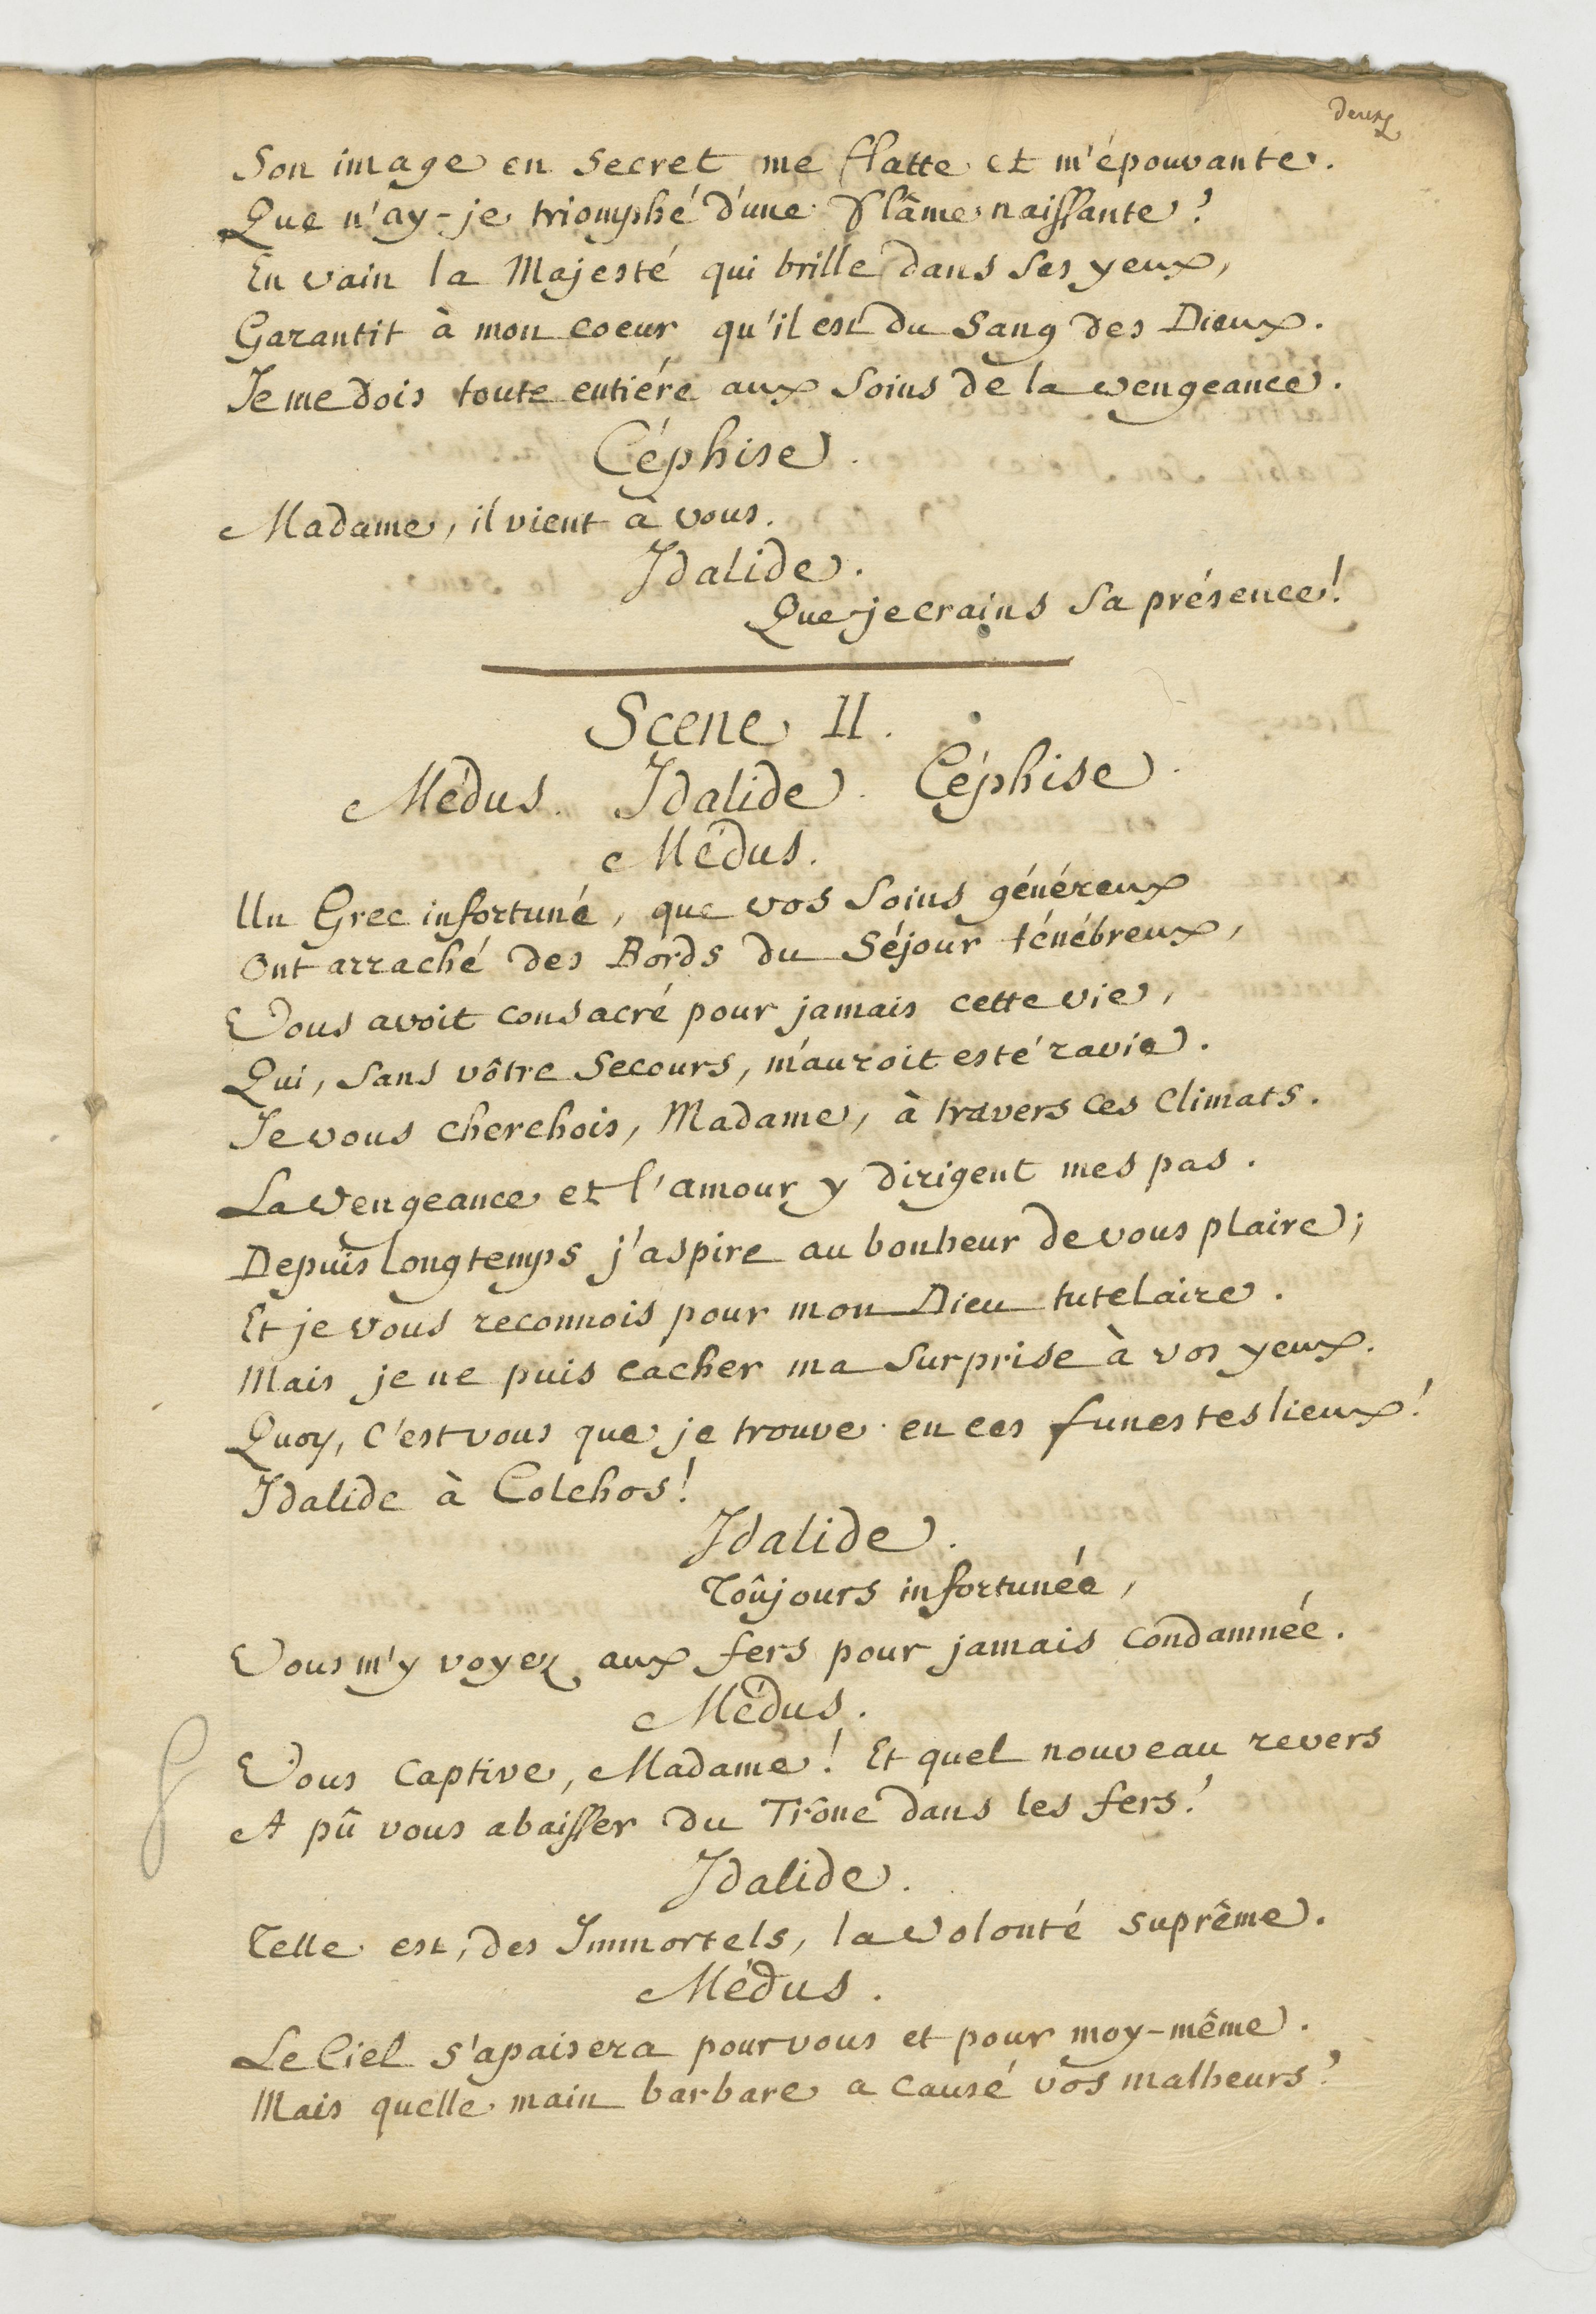 deux
Son image en secret me flatte et m'épouvante.
Que n'ay-je triomphé d'une flâme naissante?
En vain la Majesté qui brille dans ses yeux,
Garantit à mon coeur qu'il est du Sang des Dieux.
Je me dois toute entiére aux soins de la vengeance.
Céphise.
Madame, il vient à vous.
Idalide.
Que je crains sa présence!
Scene II.
Médus. Idalide. Céphise.
Médus.
Un Grec infortuné, que vos soins généreux
Ont arraché des Bords du Séjour ténébreux,
Vous avoit consacré pour jamais cette vie,
Qui, sans vôtre secours, m'auroit esté ravie.
Je vous cherchois, Madame, à travers ces Climats.
La vengeance et l'amour y dirigent mes pas.
Depuis longtemps j'aspire au bonheur de vous plaire;
Et je vous reconnois pour mon Dieu tutelaire.
Mais je ne puis cacher ma surprise à vos yeux.
Quoy, c'est vous que je trouve en ces funestes lieux!
Idalide à Colchos!
Idalide.
Toûjours infortunée,
Vous m'y voyez aux fers pour jamais condamnée.
Médus.
Vous Captive, Madame! Et quel nouveau revers
A pû vous abaisser du Trône dans les fers?
Idalide.
Telle est, des Immortels, la volonté suprême.
Médus.
Le Ciel s'apaisera pour vous et pour moy-même.
Mais quelle main barbare a causé vos malheurs?